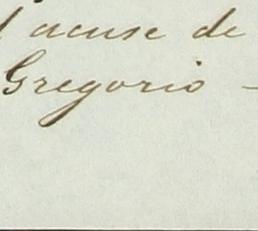 acuse de
Gregorio –